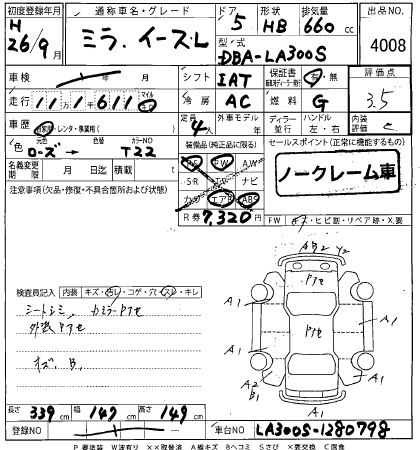 初度登録年月 通称車名・グレード ドア 形状 排気量 出品NO.
H 26/9月 ミラ.イースL 5 HB 660 cc 4008
型式 DBA-LA300S
車検 年 月 シフト IAT 保証書 有・無 評価点
走行 マイル 冷房 AC 燃料 G 3.5
車歴 自家用・レンタ・事業用( ) 定員 4人 外車モデル 年 ディーラー 並行 ハンドル 左・右 内装評価 C
色 元色 ローズ → 色替 カラーNO T22 装備品(純正品に限る) セールスポイント(正常に機能するもの)
名義変更期限 月 日迄 積載量 t PS PW A.W ノークレーム車
注意事項(欠品・修復・不具合箇所および状態) S・R TV ナビ
エアB ABS
R券 7,320円 FW キズ・ヒビ割・リペア跡・X.要
AB2 Y2
A1 P1セ A1
検査員記入 内装 キズ・汚レ・コゲ・穴・スレ・キレ
シートシミ
外装P1セ
P1セ
A1 A1
キズ.B1
A1 A1
A2 B1
長さ 339 cm 幅 147 cm 高さ 149 cm
A1
登録NO 車台NO LA300S-1280798
P 要塗装 W波有り ××取替済 A線キズ Bヘコミ Sさび ×要交換 C腐食